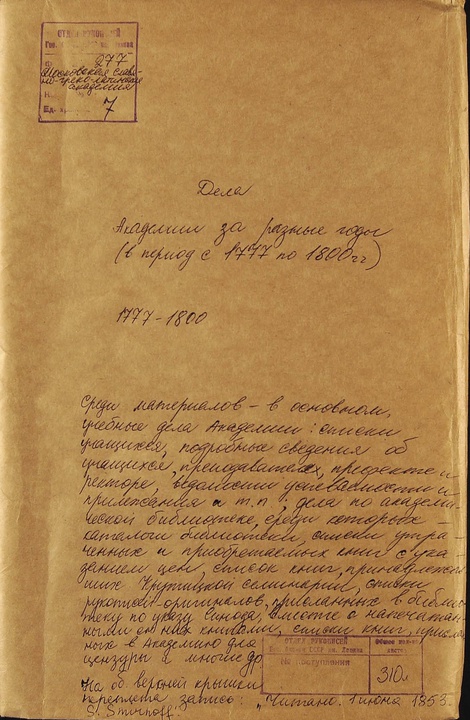 ОТДЕЛ РУКОПИСЕЙ
Гос.
277
Московская славя-
но-греко-латинская
академия
7
Дела
Академии за разные годы
(в период с 1777 по 1800 гг)
1777-1800
Среди материалов - в основном,
учебные дела Академии: списки
учащихся, подробные сведения об
учащихся, преподавателях, префекте и
ректоре, ведомости успеваемости и
прилежания и т.п., дела по академи-
ческой библиотеке, среди которых -
каталоги библиотеки, списки утра-
ченных и приобретаемых книг с ука-
занием цен, список книг, принадлежав
ших Крутицкой семинарии, списки
рукописей-оригиналов, присланных в библио-
теку по указу Синода, вместе с напечатан-
ными с них книгами, списки книг, прислан
ных в Академию для
цензуры и многие др
ОТДЕЛ РУКОПИСЕЙ
№ поступления
Общее кол-во
листов
310л
На об. верхней крышки
переплета запись: "Читано. 1 июня 1853.
S. Smirnoff."